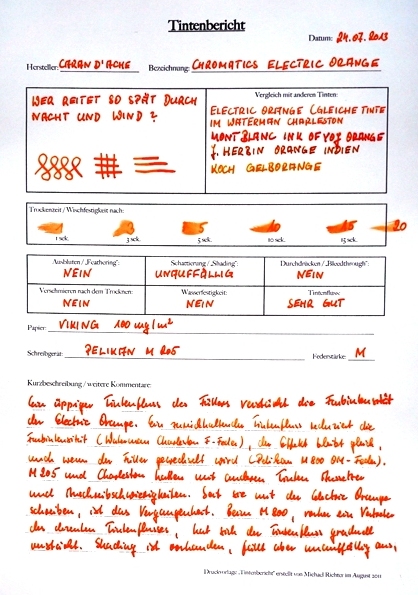 Tintenbericht
Datum: 24.07.2013
Hersteller: CARAN D'ACHE Bezeichnung: CHROMATICS ELECTRIC ORANGE
WER REITET SO SPÄT DURCH
NACHT UND WIND?
Vergleich mit anderen Tinten:
ELECTRIC ORANGE (GLEICHE TINTE
IM WATERMAN CHARLESTON
MONTBLANC INK OF JOY ORANGE
J. HERBIN ORANGE INDIEN
KOCH GELBORANGE
Trockenzeit / Wischfestigkeit nach:
1 3 5 10 15 20
1 sek. 3 sek. 5 sek. 10 sek. 15 sek.
Ausbluten / „Feathering": Schattierung / „Shading": Durchdrücken / „Bleedthrough":
NEIN UNAUFFÄLLIG NEIN
Verschmieren nach dem Trocknen: Wasserfestigkeit: Tintenfluss:
NEIN NEIN SEHR GUT
Papier: VIKING 100 mg/m²
Schreibgerät: PELIKAN M 205 Federstärke: M
Kurzbeschreibung / weitere Kommentare:
Ein üppiger Tintenfluss des Füllers verstärkt die Farbintensität
der Electric Orange. Ein zurückhaltender Tintenfluss reduziert die
Farbintensität (Waterman Charleston F-Feder), der Effekt bleibt gleich,
auch wenn der Füller gewechselt wird (Pelikan M 800 OM-Feder).
M 205 und Charleston hatten mit anderen Tinten Aussetzer
und Anschreibschwierigkeiten. Seit sie mit der Electric Orange
schreiben, ist das Vergangenheit. Beim M 800, vorher ein Vertreter
des dezenten Tintenflusses, hat sich der Tintenfluss graduell
verstärkt. Shading ist vorhanden, fällt aber unauffällig aus.
Druckvorlage „Tintenbericht" erstellt von Michael Richter im August 2011